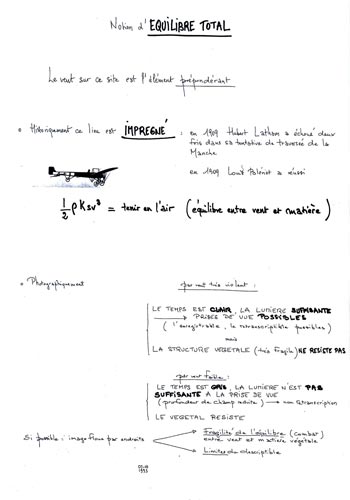 Notion d'EQUILIBRE TOTAL
Le vent sur ce site est l'élément prépondérant
Historiquement ce lieu est IMPREGNÉ : en 1909 Hubert Latham a échoué deux
fois dans sa tentative de traversée de la
Manche
en 1909 Louis Blériot a réussi
1/2 ρ K s v² = tenir en l'air (équilibre entre vent et matière)
Photographiquement
par vent très violent :
LE TEMPS EST CLAIR, LA LUMIERE SUFFISANTE
→ PRISES DE VUE POSSIBLES
(l'enregistrable, le retranscriptible possibles)
mais
LA STRUCTURE VEGETALE (très fragile) NE RESISTE PAS
par vent faible :
LE TEMPS EST GRIS, LA LUMIERE N'EST PAS
SUFFISANTE A LA PRISE DE VUE
(profondeur de champ réduite) → non retranscription
LE VEGETAL RESISTE
Si possible : image floue par endroits
Fragilité de l'équilibre (combat)
entre vent et matière végétale
Limites du descriptible
1993